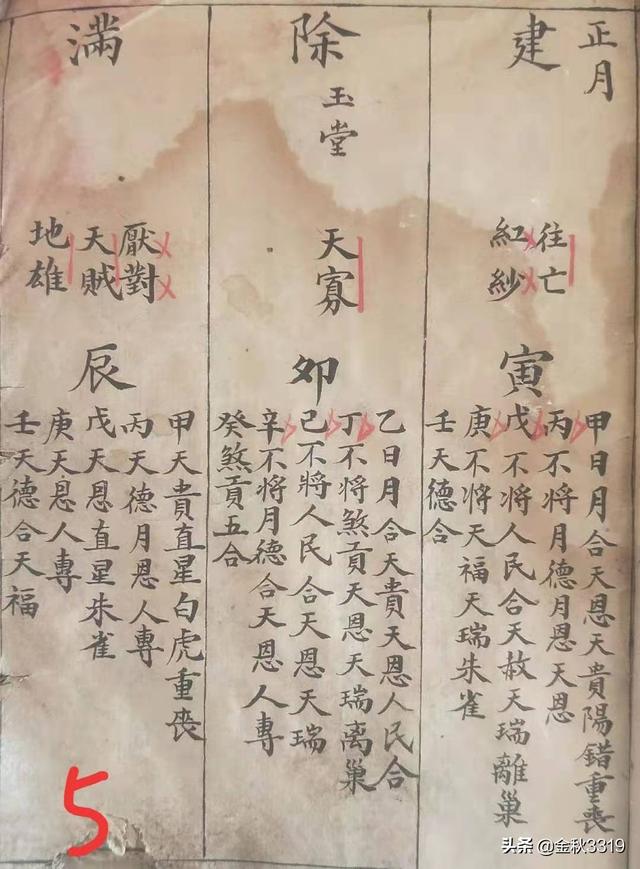 正月
建
往亡
紅紗
寅
甲日月合天恩天貴陽錯重喪
丙不將月德月恩天恩
戊不將人民合天赦天瑞離巢
庚不將天福天瑞朱雀
壬天德合
除
玉堂
天寡
卯
乙日月合天貴天恩人民合
丁不將煞貢天恩天瑞离巢
己不將人民合天恩天瑞
辛不將月德合天恩人專
癸煞貢五合
滿
厭對
天賊
地雄
辰
甲天貴直星白虎重喪
丙天德月恩人專
戊天恩直星朱雀
庚天恩人專
壬天德合天福
5
头条 @金秋3319